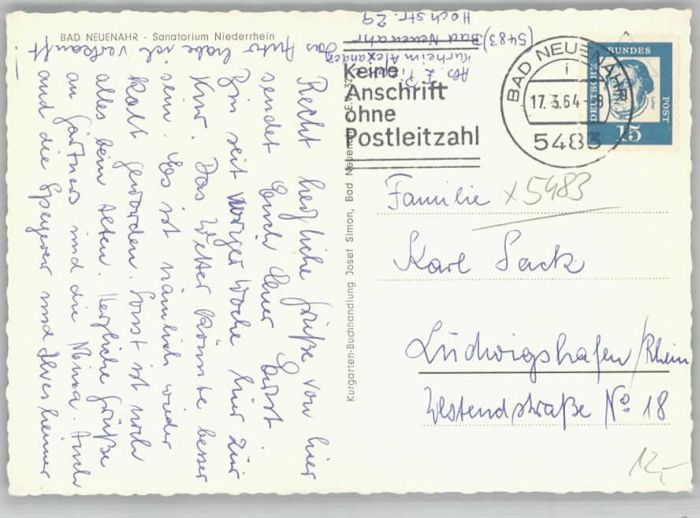 BAD NEUENAHR - Sanatorium Niederrhein
Recht herzliche Grüße von hier
sendet Euch Euer Ernst.
Bin seit voriger Woche hier zur
Kur. Das Wetter könnte besser
sein. Es ist nämlich wieder
kalt geworden. Sonst ist noch
alles beim Alten. Herzliche Grüße
an Gärtners und die Nanna. Auch
und die Speyerer und
das Auto habe ich verkauft!
Kurheim Alexander
(5483) Bad Neuenahr
Hochstr. 29
Kurgarten-Buchhandlung Josef Simon, Bad Neuenahr
Keine
Anschrift
ohne
Postleitzahl
BAD NEUENAHR
17.3.64
5483
DEUTSCHE
BUNDES
POST
15
Familie x 5483
Karl Sack
Ludwigshafen/Rhein
Westendstraße No 18
12,-